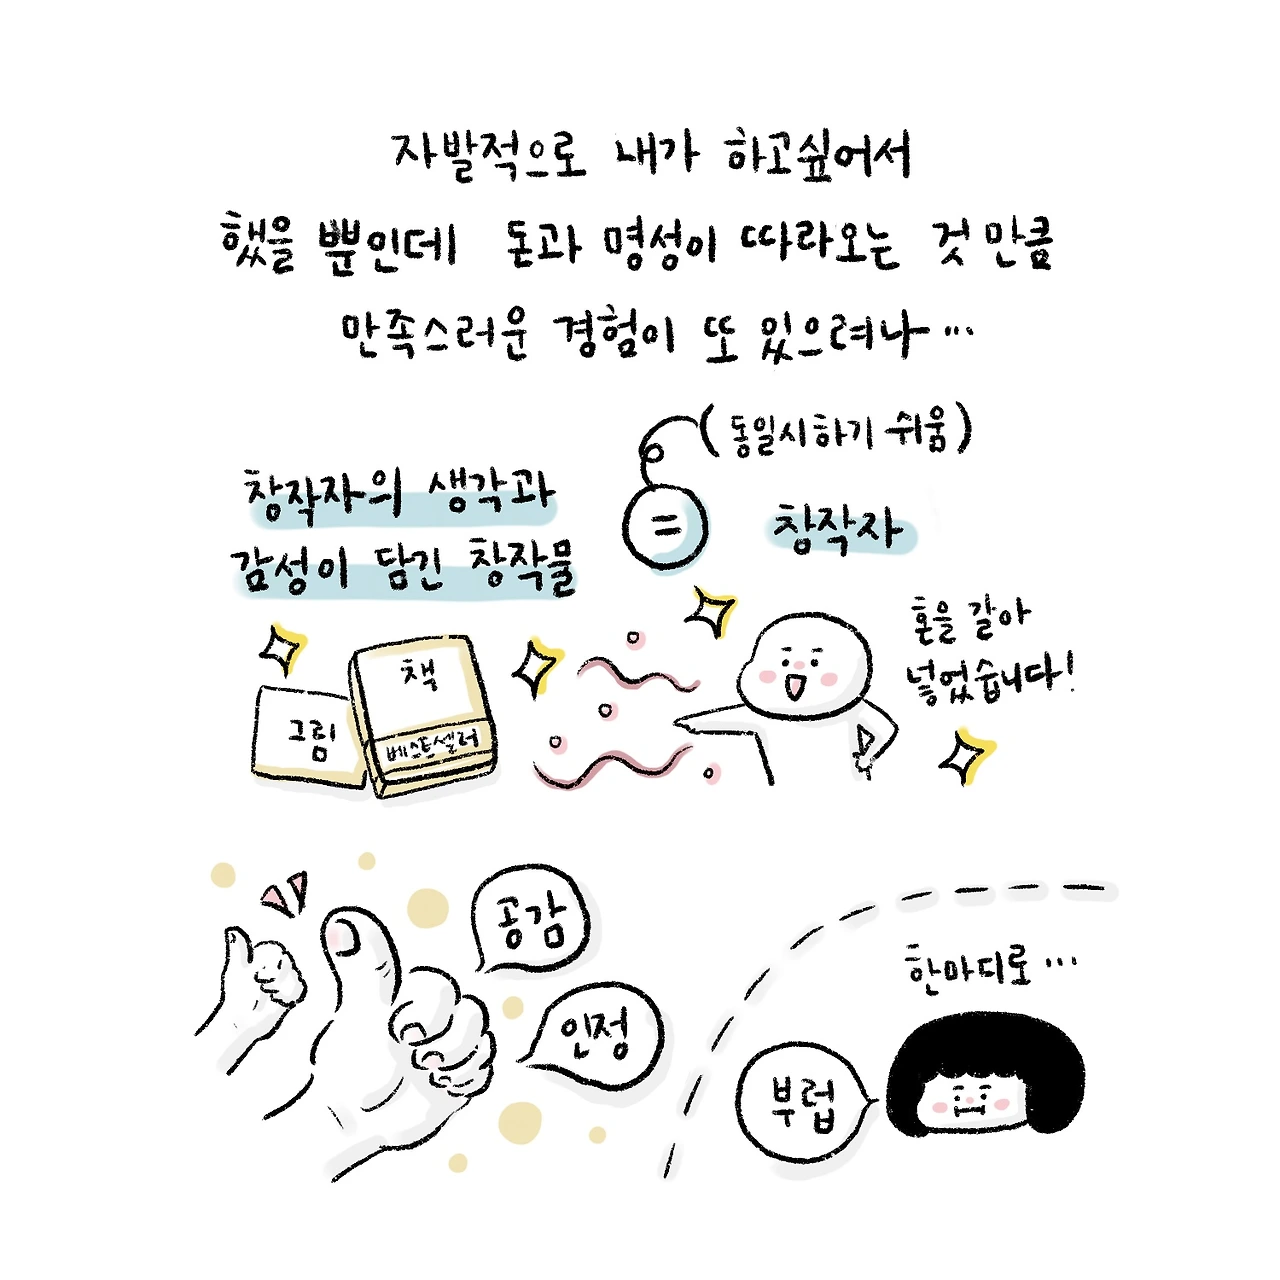 자발적으로 내가 하고싶어서
했을 뿐인데 돈과 명성이 따라오는 것 만큼
만족스러운 경험이 또 있으려나...
(동일시하기 쉬움)
창작자의 생각과
감성이 담긴 창작물
=
창작자
혼을 갈아
넣었습니다!
그림
책
베스트셀러
공감
인정
한마디로...
부럽